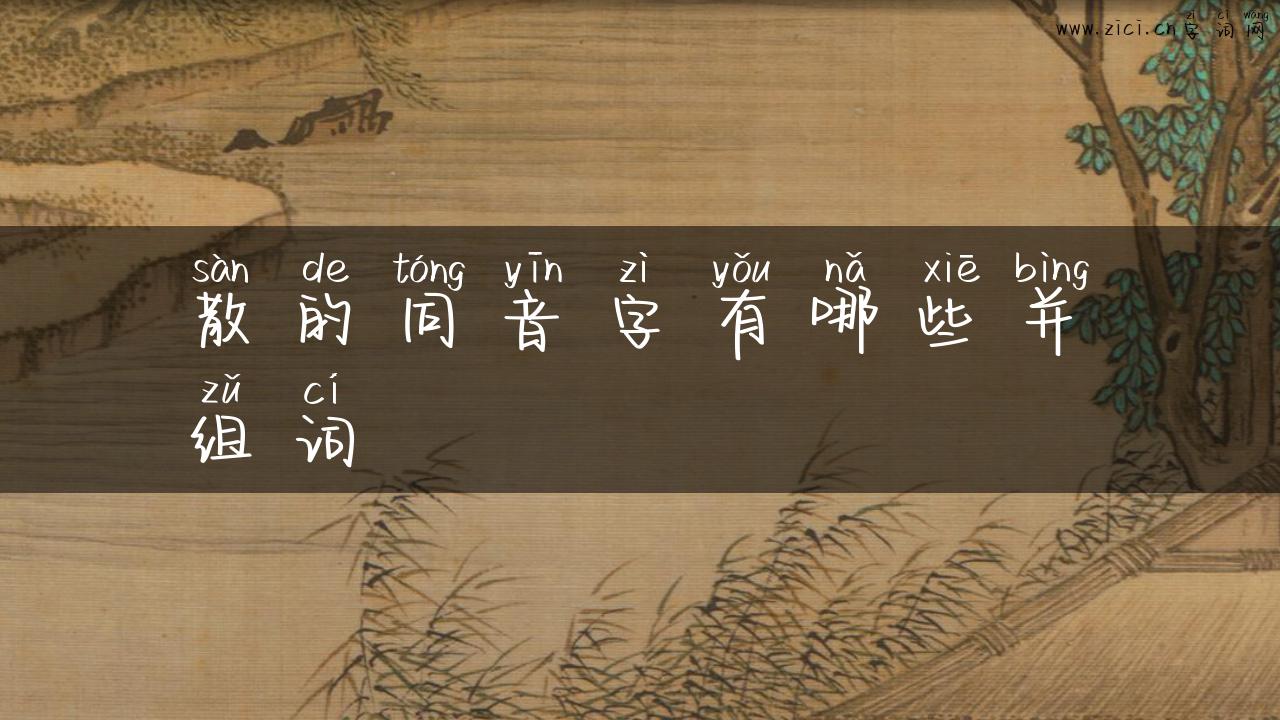 zì cí wǎng
www.zici.cn字词网
sàn de tóng yīn zì yǒu nǎ xiē bìng
散的同音字有哪些并
zǔ cí
组词